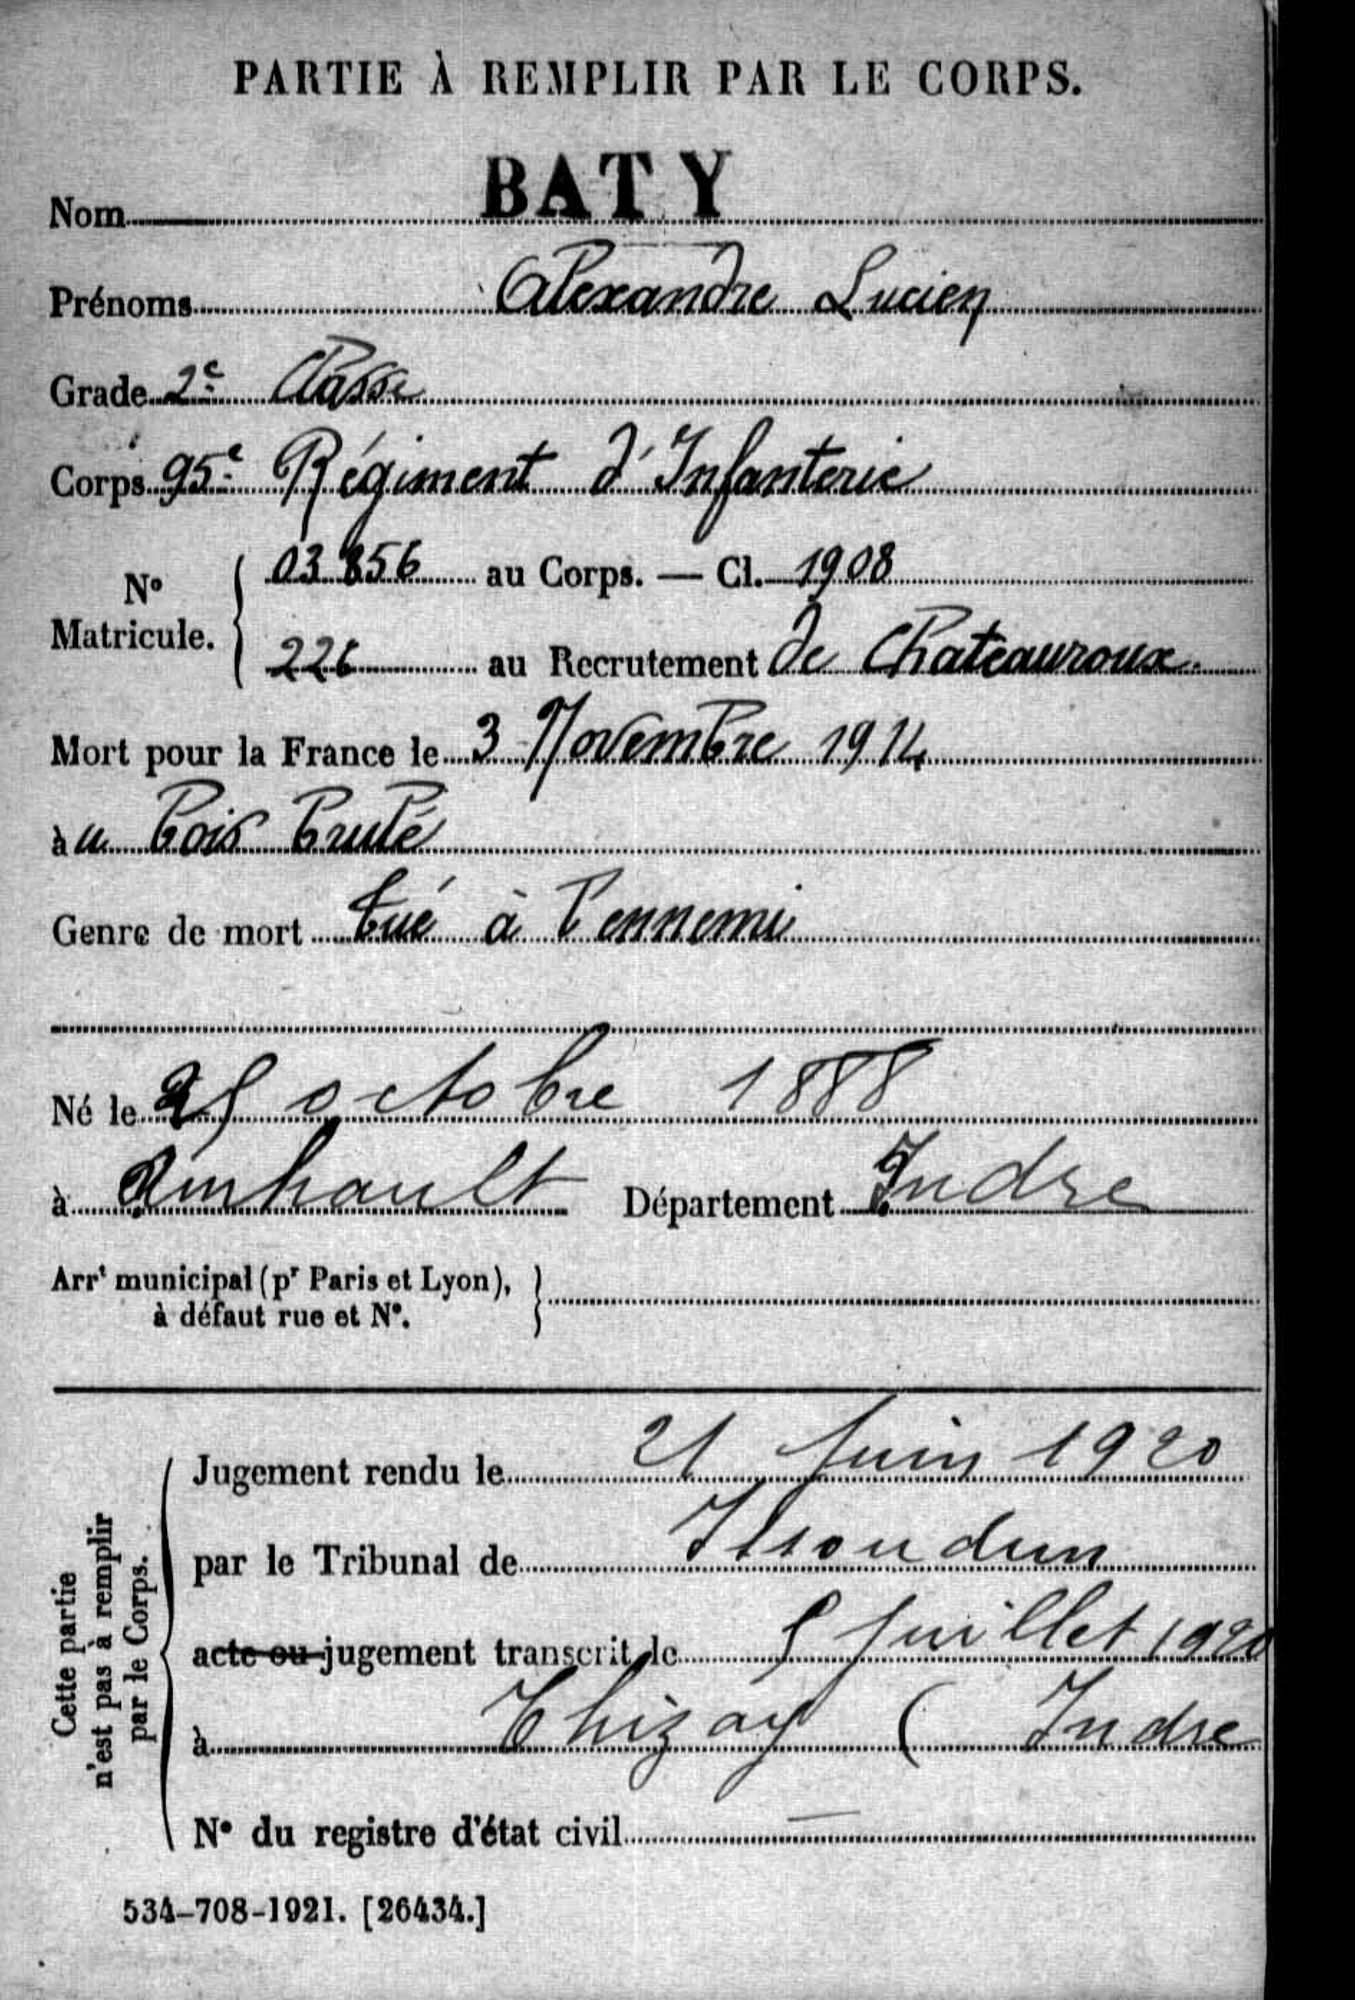 PARTIE À REMPLIR PAR LE CORPS.
Nom BATY
Prénoms Alexandre Lucien
Grade 2e Classe
Corps 95e Régiment d'Infanterie
No Matricule. { 03856 au Corps. — Cl. 1908
226 au Recrutement de Chateauroux
Mort pour la France le 3 Novembre 1914
au Bois Brulé
Genre de mort tué à l'ennemi
Né le 25 octobre 1888
à Département Indre
Arrt municipal (pr Paris et Lyon), }
à défaut rue et No.
Cette partie
n'est pas à remplir
par le Corps.
Jugement rendu le 21 Juin 1920
par le Tribunal de Issoudun
acte ou jugement transcrit le 5 Juillet 1920
à Thizay (Indre
No du registre d'état civil —
534-708-1921. [26434.]